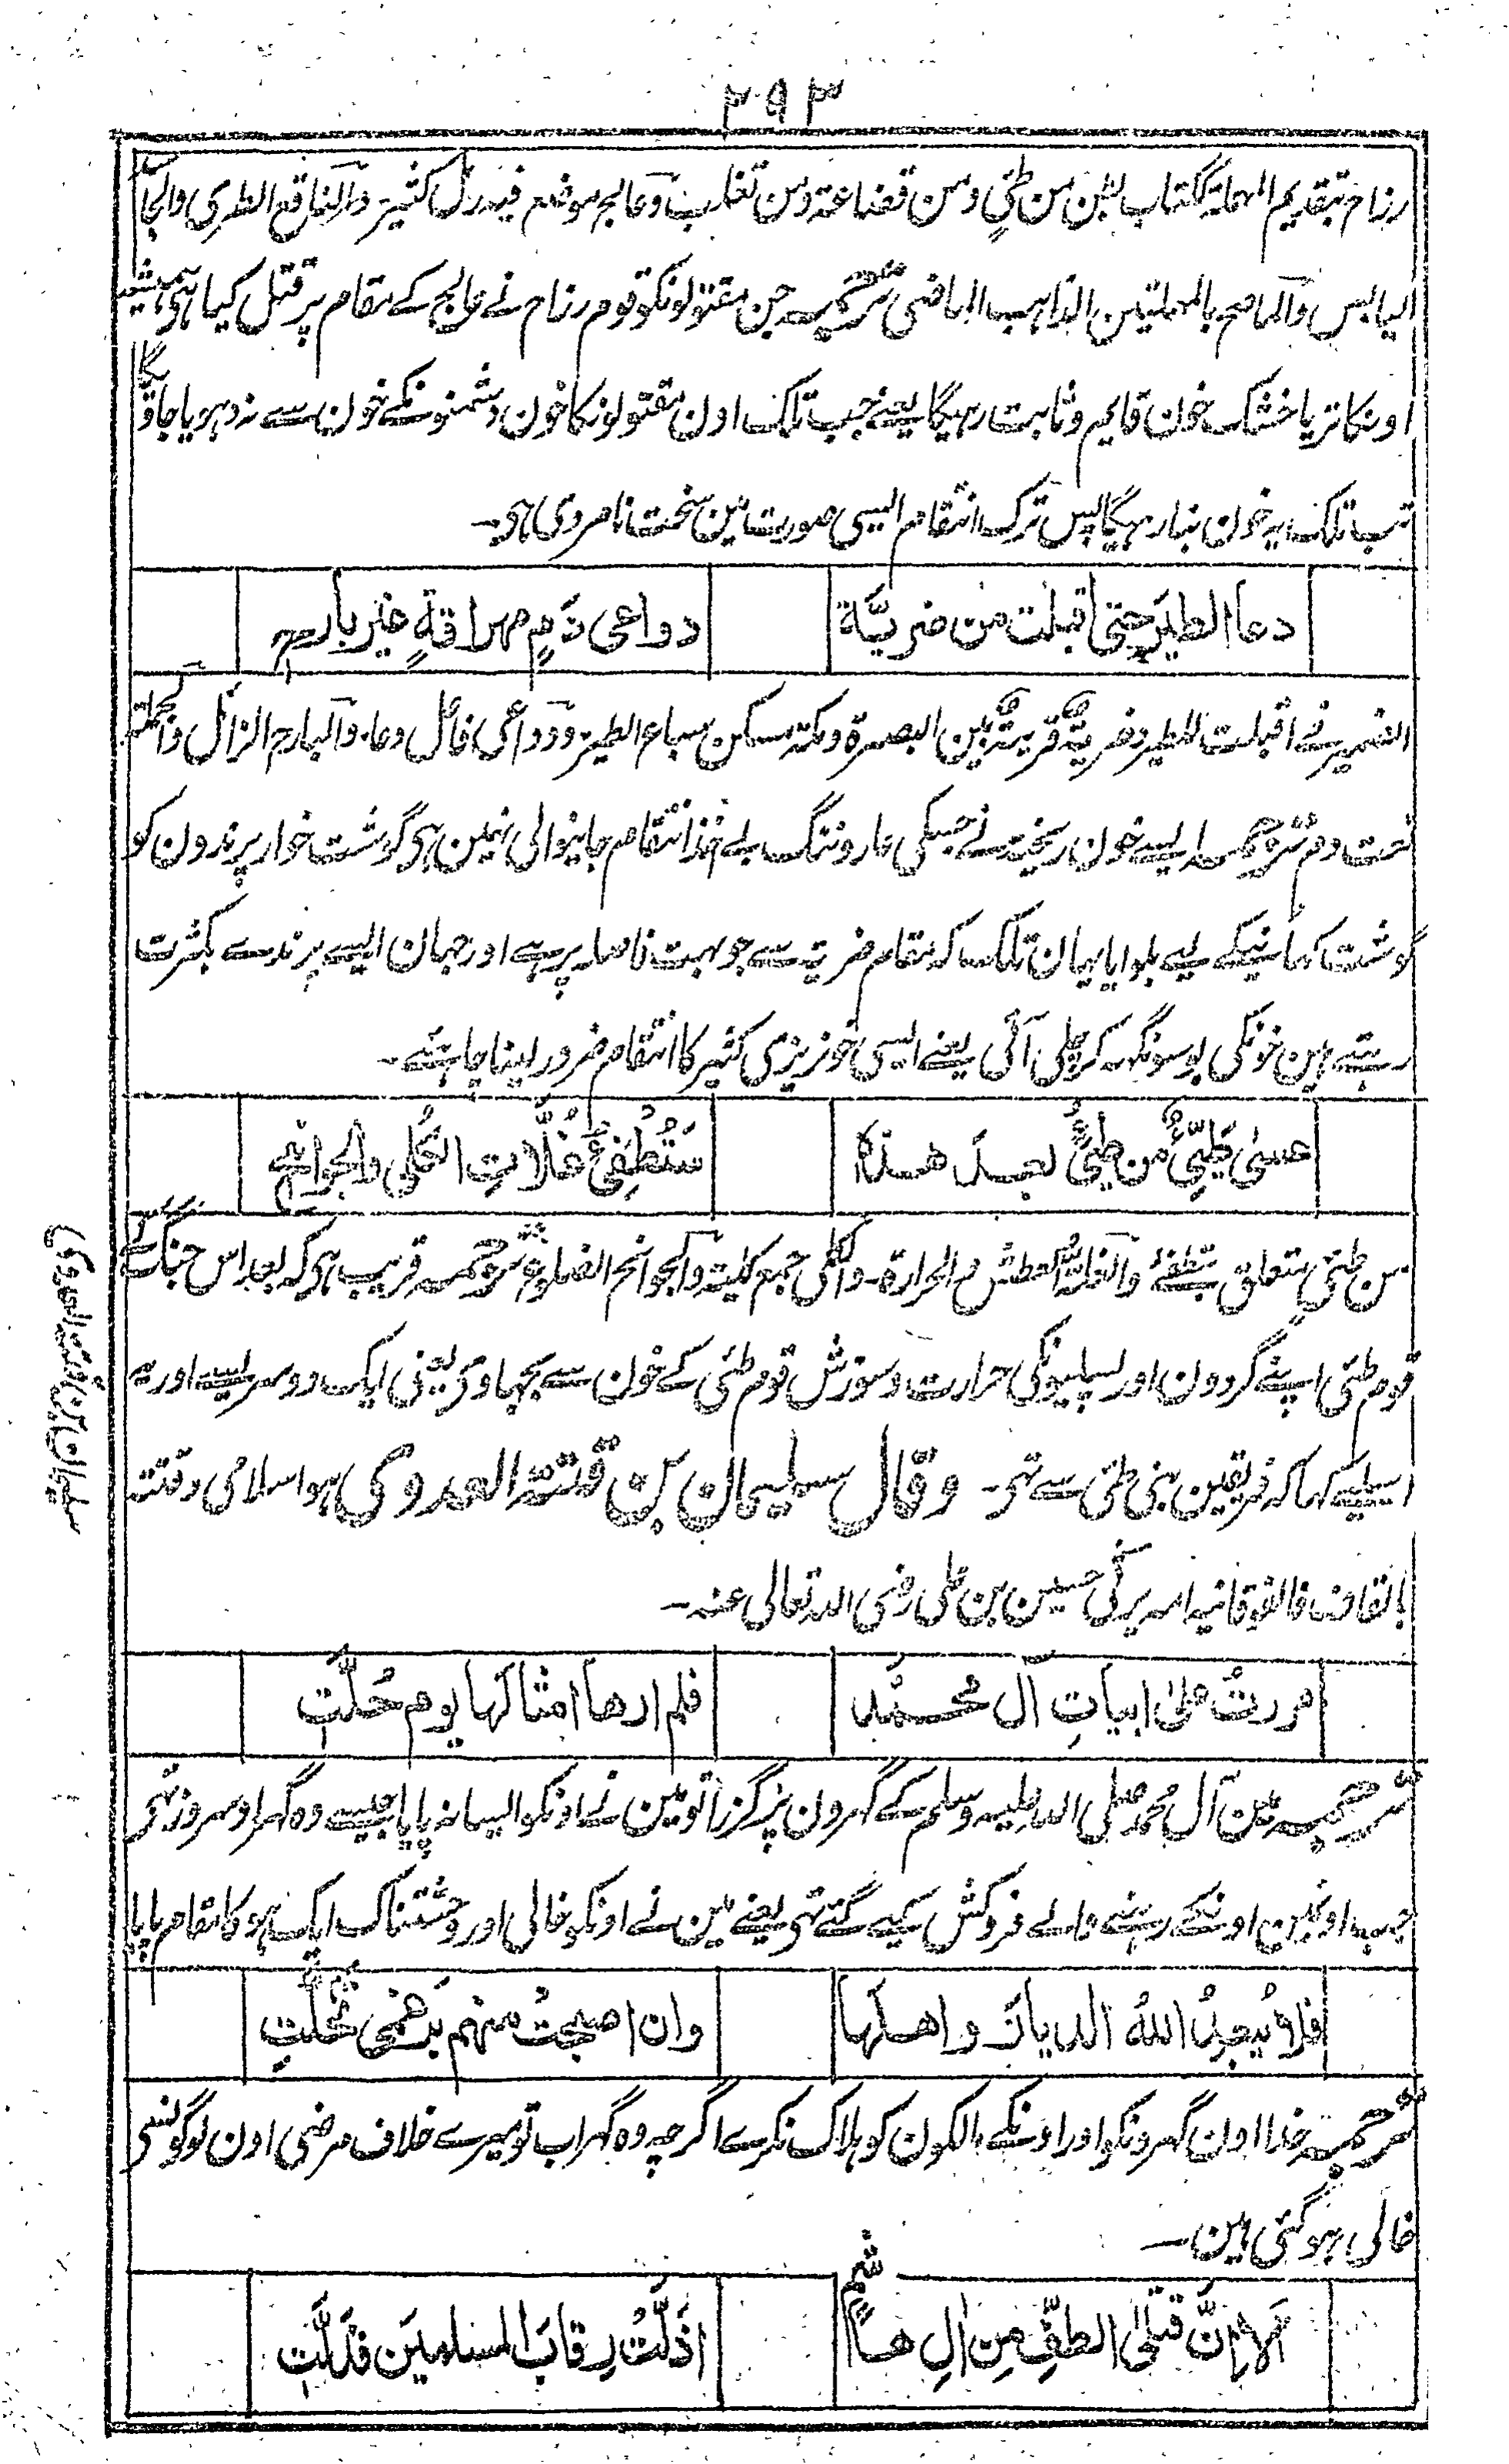 ۲۹۳
رزام بتقدیم المهملة ککتاب بطن من طئ ومن قضاعة ومن تغلب وعالج موضع فیه رمل کثیر والناقع الطری والجاسد
الیابس والماصح بالمهملتین الذاهب الماضی ترجمہ جن مقتولونکو قوم رزام نے عالج کے مقام پر قتل کیا ہی ہمیشہ
اونکا تر یا خشک خون قایم و ثابت رہیگا یعنے جب تلک اون مقتولونکا خون دشمنونکے خون سے نہ دہویا جاویگا
تب تلک یہ خون بنا رہیگا پس ترک انتقام ایسی صورت مین سخت نامردی ہی۔
دعا الطیرَ حتی اقبلت من ضریَّة دواعی دَمٍ مهراقةٍ غیر بارح
الضمیر فے اقبلت للطیر وضریةُ قریةٌ بین البصرة ومکة مسکن سباع الطیر ودواعی فاعل دعا۔ والبارح الزائل والجملة
نعت دم ترجمہ ایسے خون ریختہ نے جسکی عار و ننگ بے اخذ انتقام جانیوالی نہین ہی گوشت خوار پرندون کو
گوشت کہانیکے لیے بلوایا یہان تلک کہ مقام ضریہ سے جو بہت فاصلہ پر ہے اور جہان ایسے پرندے بکثرت
رہتے ہین خونکی بو سونگہ کر چلی آئی یعنے ایسی خونریزی کثیر کا انتقام ضرور لینا چاہئے۔
عسیٰ طَیِّئٌ من طیئٍ بعدَ هذه سَتُطْفِئُ غُلَّاتِ الکُلی والجوانح
من طئ متعلق بتطفئ والغلةُ العطش والحرارة۔ والکلی جمع کلیة والجوانح الضلوع ترجمہ قریب ہی کہ بعد اس جنگ کے
قوم طئی اپنے گردون اور پسلیونکی حرارت و سوزش قوم طئی کے خون سے بجہاوی یعنی ایک دوسریسے اور یہ
اسلیے کہا کہ فریقین بنی طئی سے تہی۔ وقال سلیمان بن قتة العدوی ہو اسلامی وقتة
بالقاف فالفوقانیة امه یرثی حسین بن علی رضی الله تعالی عنه۔
سلیمان بن قتة العدوی
مررتُ علیٰ ابیاتِ آل محمدٍ فلم ارها امثالَها یوم حُلَّت
ترجمہ مین آل محمد صلی الله علیه وسلم کے گہرون پر گزرا تو مین نے اونکو ایسا نہ پایا جیسے وہ گہر اوسروز تہی
جب اونمین اونکے رہنے والے فروکش کیے گئے تہی یعنے مین نے اونکو خالی اور وحشتناک ایک ہو کا مقام پایا
فلا یُبعِدُ اللهُ الدیارَ واهلَها وان اصبحتْ منهم بِرَغمی تخلَّتِ
ترجمہ خدا اون گہرونکو اور اونکے مالکون کو ہلاک نکرے اگرچہ وہ گہر اب تو میرے خلاف مرضی اون لوگونسی
خالی ہوگئی ہین۔
اَلا اِنَّ قتلیٰ الطفِّ مِن اٰلِ هاشمٍ اذَلَّتْ رِقابَ المسلمینَ فذلَّت